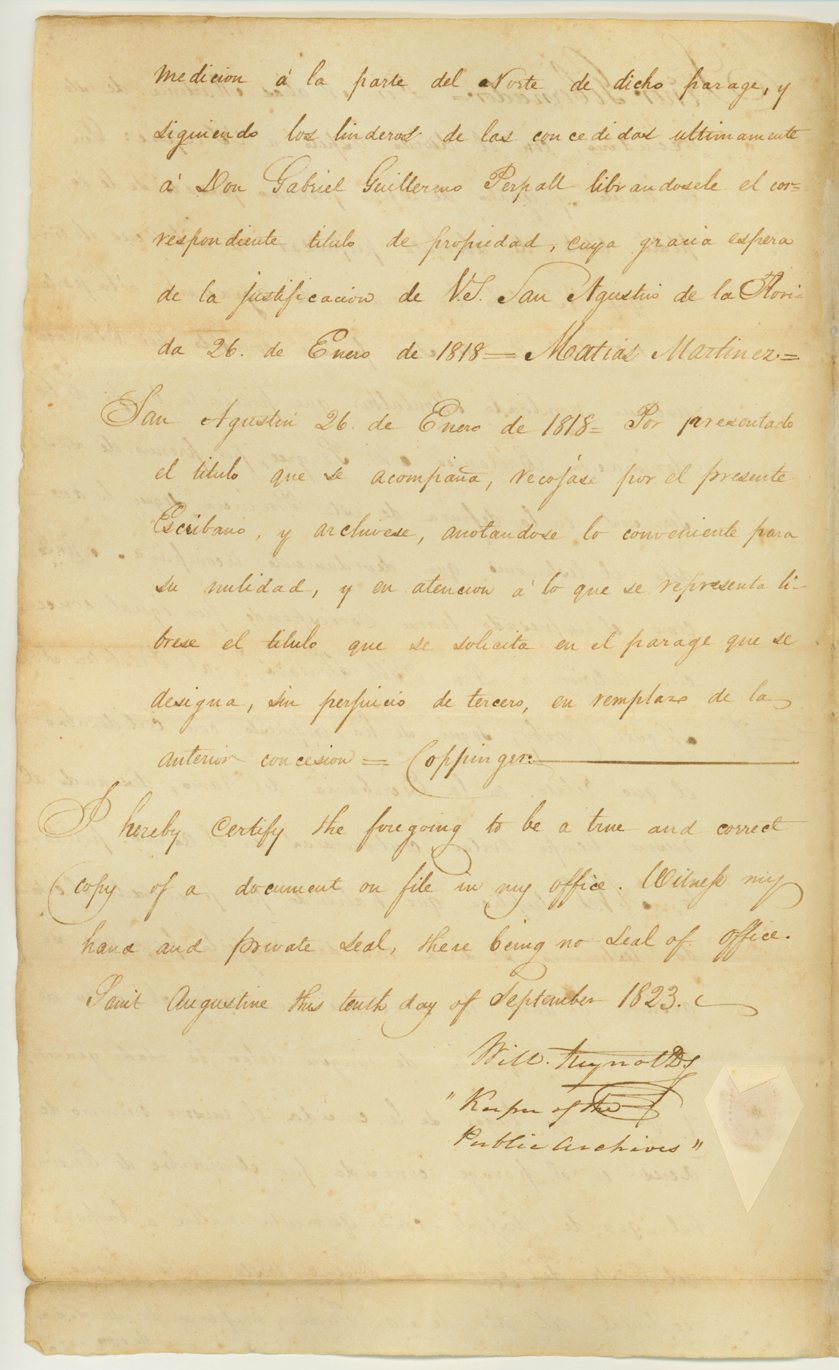 medicion á la parte del Norte de dicho parage, y
siguiendo los linderos de las concedidas ultimamente
á Don Gabriel Guillermo Perpall librandosele el cor=
respondiente titulo de propiedad, cuya gracia espera
de la justificacion de V.S. San Agustin de la Flori-
da 26. de Enero de 1818= Matias Martinez=
San Agustin 26. de Enero de 1818= Por presentado
el titulo que se acompaña, recojase por el presente
Escribano, y archivese, anotandose lo conveniente para
su nulidad, y en atencion á lo que se representa li-
brese el titulo que se solicita en el parage que se
designa, sin perjuicio de tercero, en remplazo de la
anterior concesion = Coppinger.
I hereby Certify the foregoing to be a true and correct
Copy of a document on file in my office. Witness my
hand and private seal, there being no seal of office.
Saint Augustine this tenth day of September 1823.
Will. Reynolds
"Keeper of the
Public Archives"